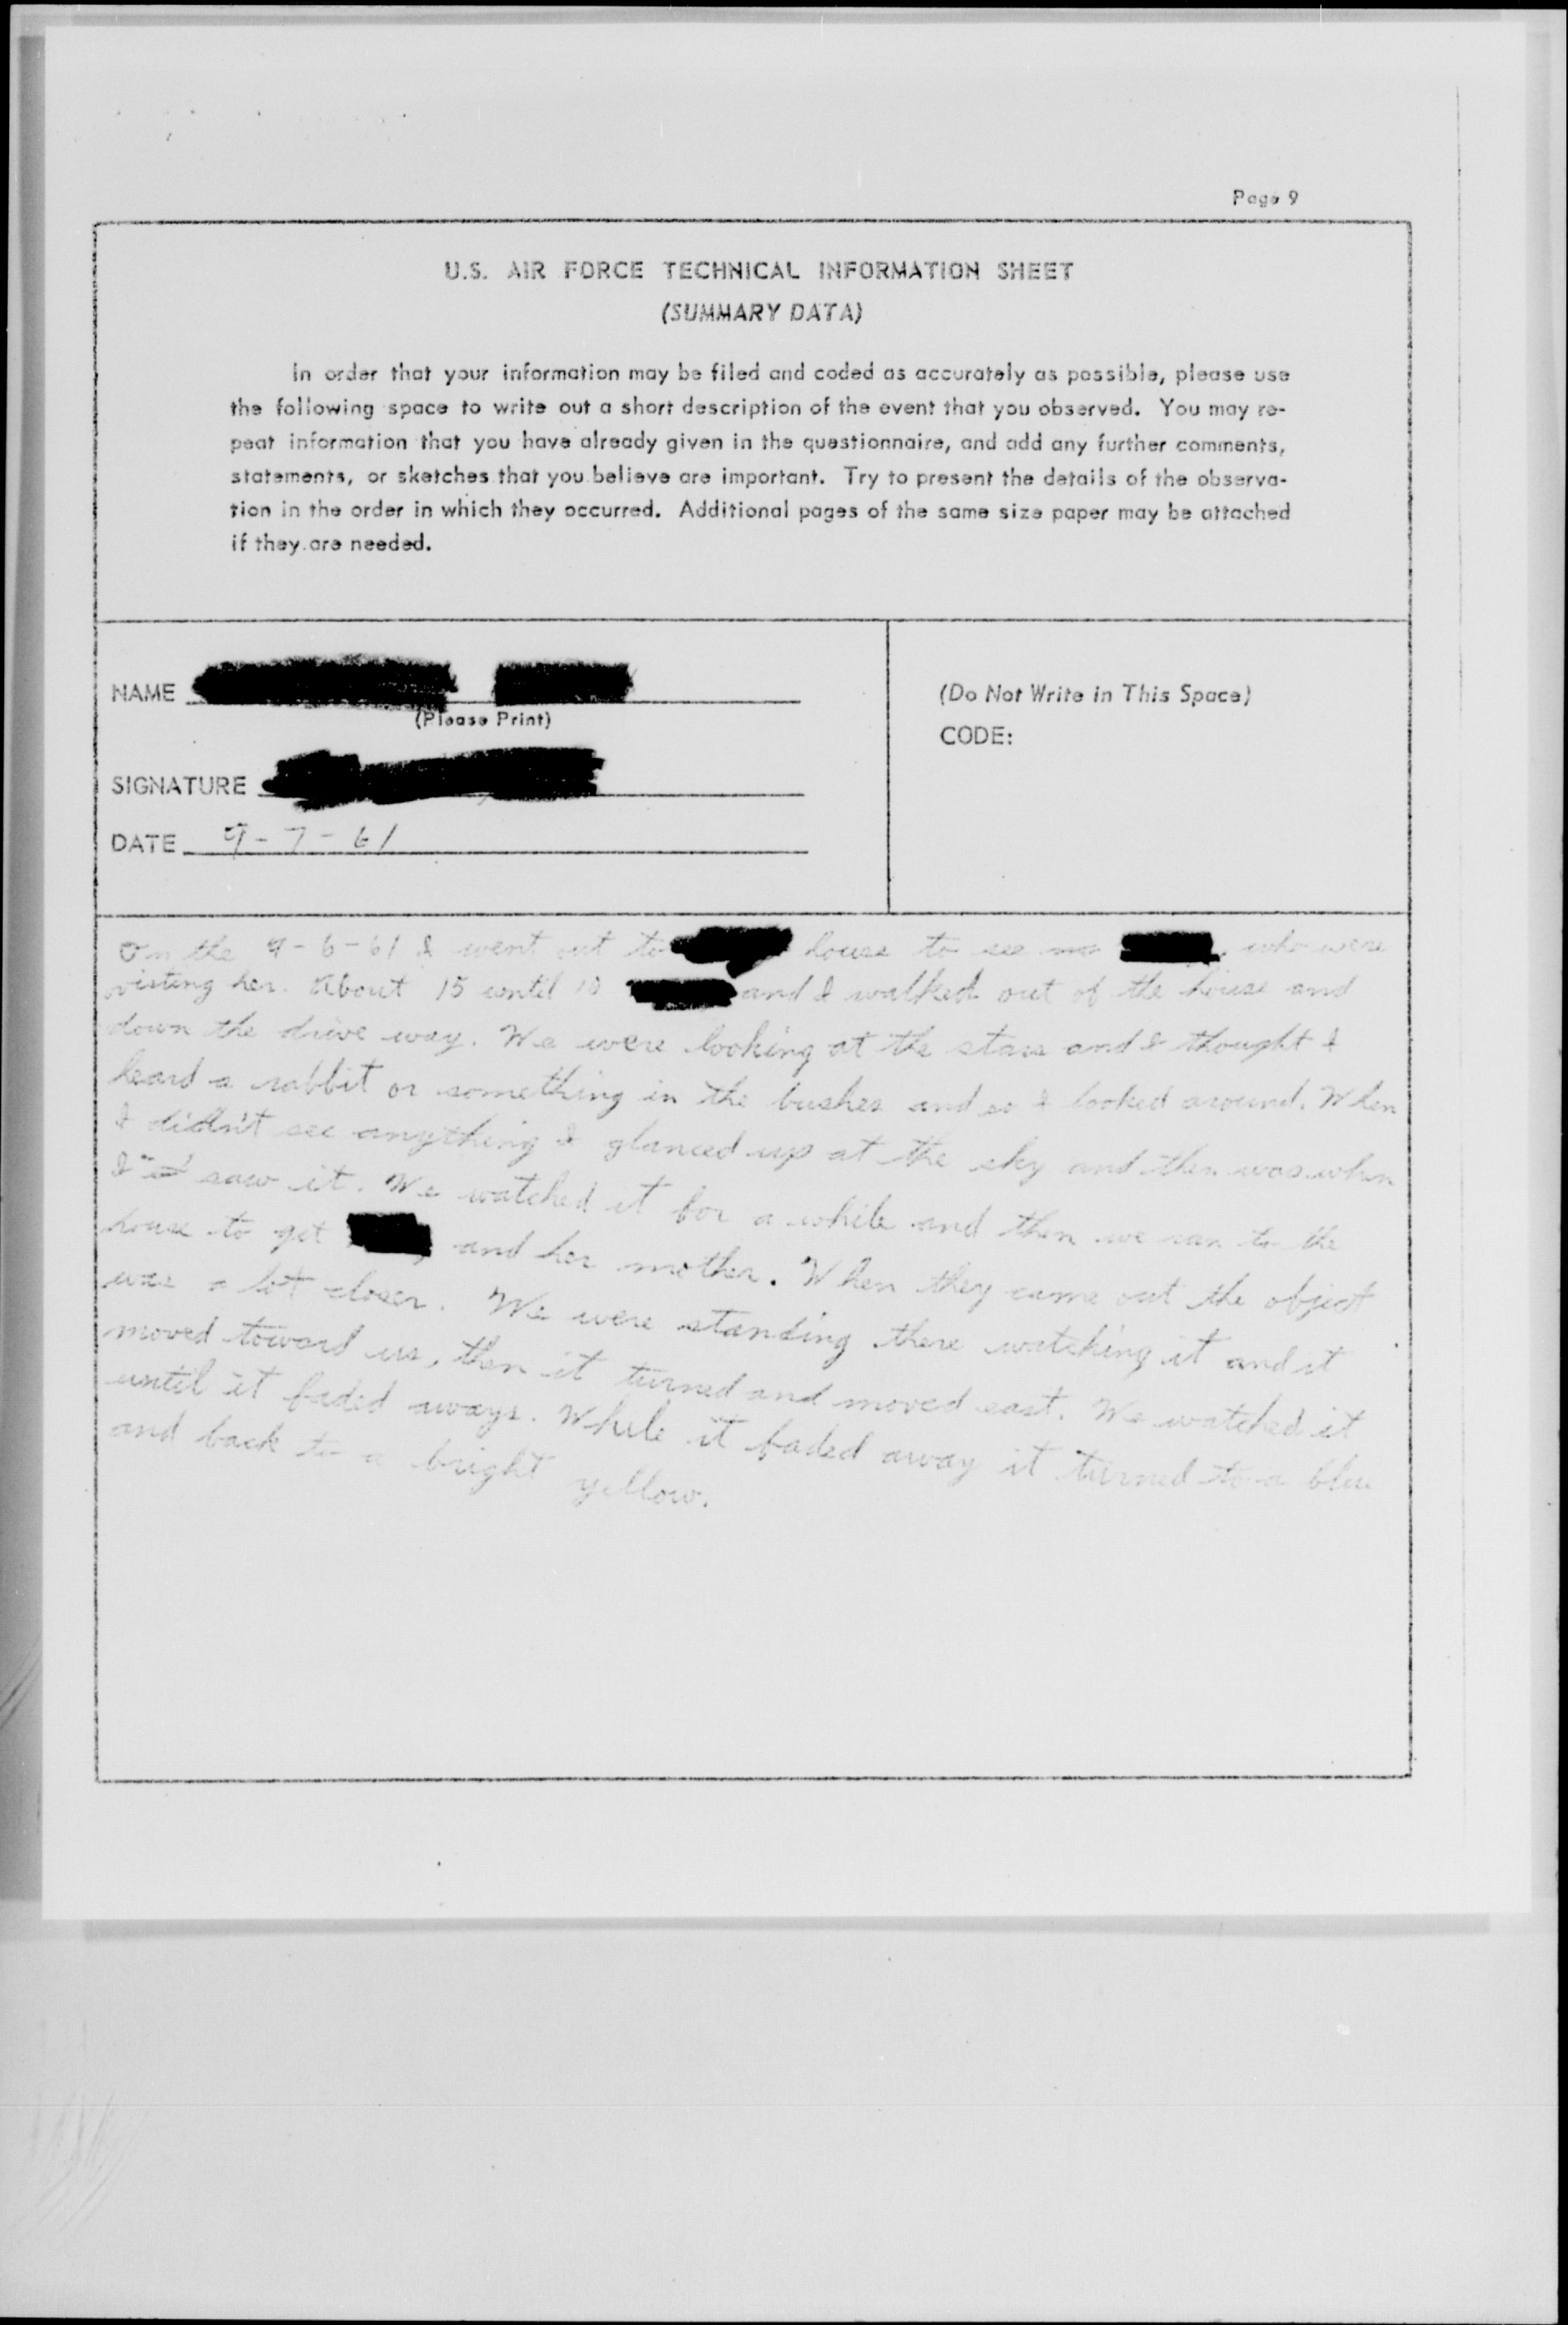 Page 9
U.S. AIR FORCE TECHNICAL INFORMATION SHEET
(SUMMARY DATA)
In order that your information may be filed and coded as accurately as possible, please use
the following space to write out a short description of the event that you observed. You may re-
peat information that you have already given in the questionnaire, and add any further comments,
statements, or sketches that you believe are important. Try to present the details of the observa-
tion in the order in which they occurred. Additional pages of the same size paper may be attached
if they are needed.
NAME
(Please Print)
SIGNATURE
DATE 9-7-61
(Do Not Write in This Space)
CODE:
On the 9-6-61 I went out to house to see who were
visting her. About 15 until 10 and I walked out of the house and
down the drive way. We were looking at the stars and I thought I
heard a rabbit or something in the bushes and so I looked around. When
I didn't see anything I glanced up at the sky and then was when
I saw it. We watched it for a while and then we ran to the
house to get and her mother. When they came out the object
was a lot closer. We were standing there watching it and it
moved toward us, then it turned and moved east. We watched it
until it faded aways. While it faded away it turned to a blue
and back to a bright yellow.